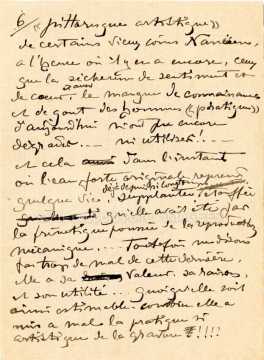 6/ « pittoresque artistique »
de certains vieux coins Nancéens,
à l'épave où il y en a encore, ceux
que la sécheresse de sentiment et
de cœur, & aussi le manque de connaissances
et de goût des hommes (« pratiques »)
d'aujourd'hui n'ont pas encore
dégradé.... ni utilisés....
et cela dans l'instant
où l'eau forte originale reprend
quelque vie, depuis
qu'elle avait été par
la frénétique poussée de la reproduction
mécanique.... Toutefois ne disons
pas trop de mal de cette dernière,
elle a sa valeur, sa raison,
et son utilité.. Quoiqu'elle soit
ainsi estimable elle a
mis à mal la pratique si
artistique de la gravure !!!!